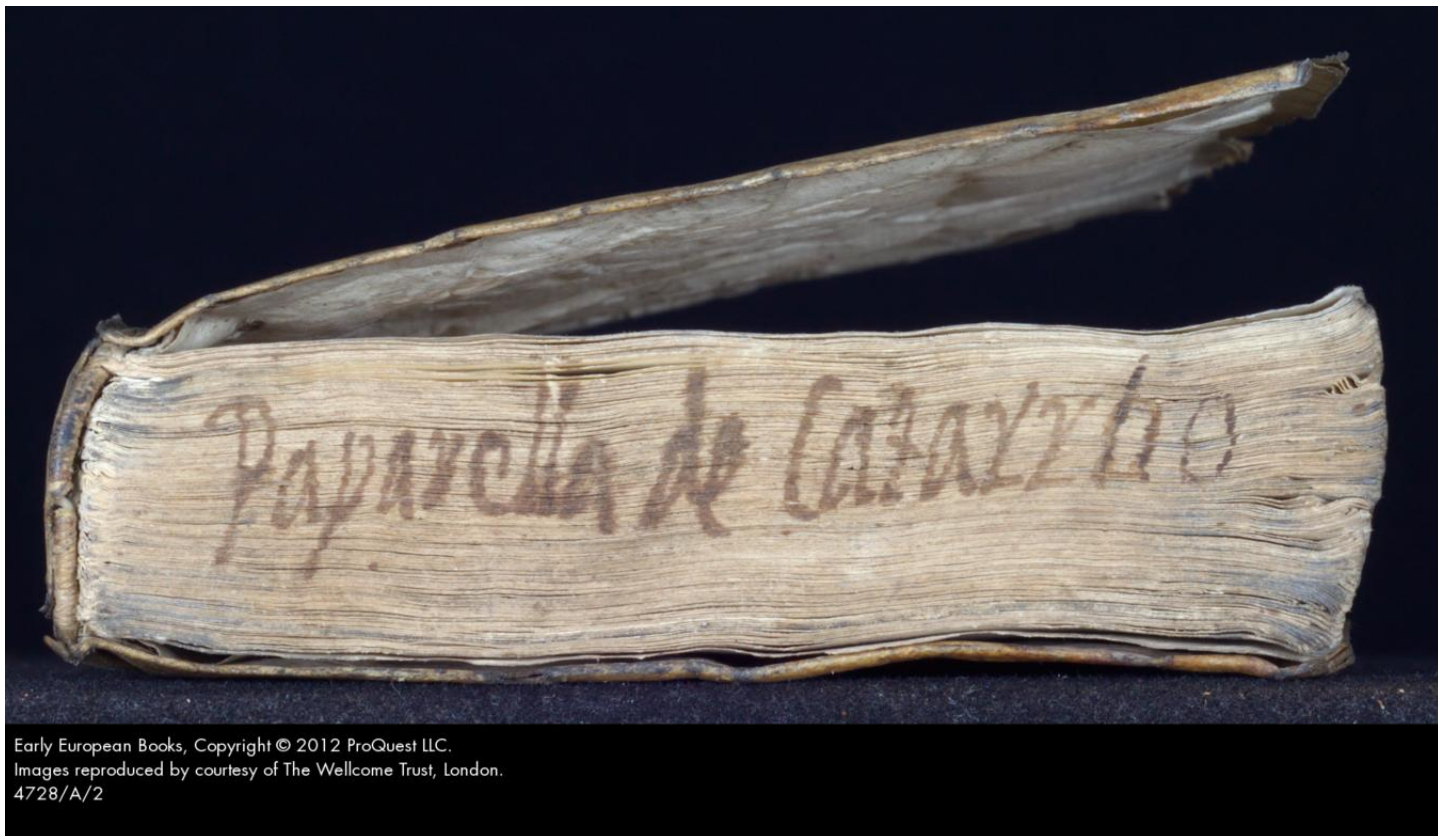 Paparella de Catarrho
Early European Books, Copyright © 2012 ProQuest LLC.
Images reproduced by courtesy of The Wellcome Trust, London.
4728/A/2